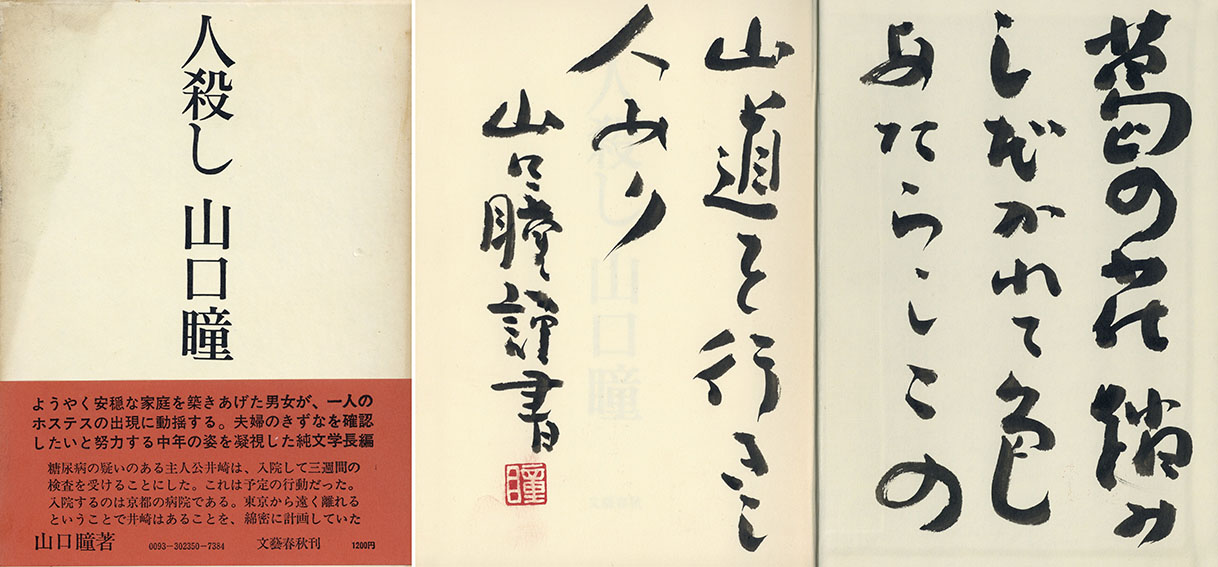 人殺し 山口瞳
ようやく安穏な家庭を築きあげた男女が、一人の
ホステスの出現に動揺する。夫婦のきずなを確認
したいと努力する中年の姿を凝視した純文学長編
糖尿病の疑いのある主人公井崎は、入院して三週間の
検査を受けることにした。これは予定の行動だった。
入院するのは京都の病院である。東京から遠く離れる
ということで井崎はあることを、綿密に計画していた
山口瞳著 0093-302350-7384 文藝春秋刊 1200円
葛の花 踏み
しだかれて色
あたらしこの
山道を行きし
人あり
山口瞳謹書
瞳